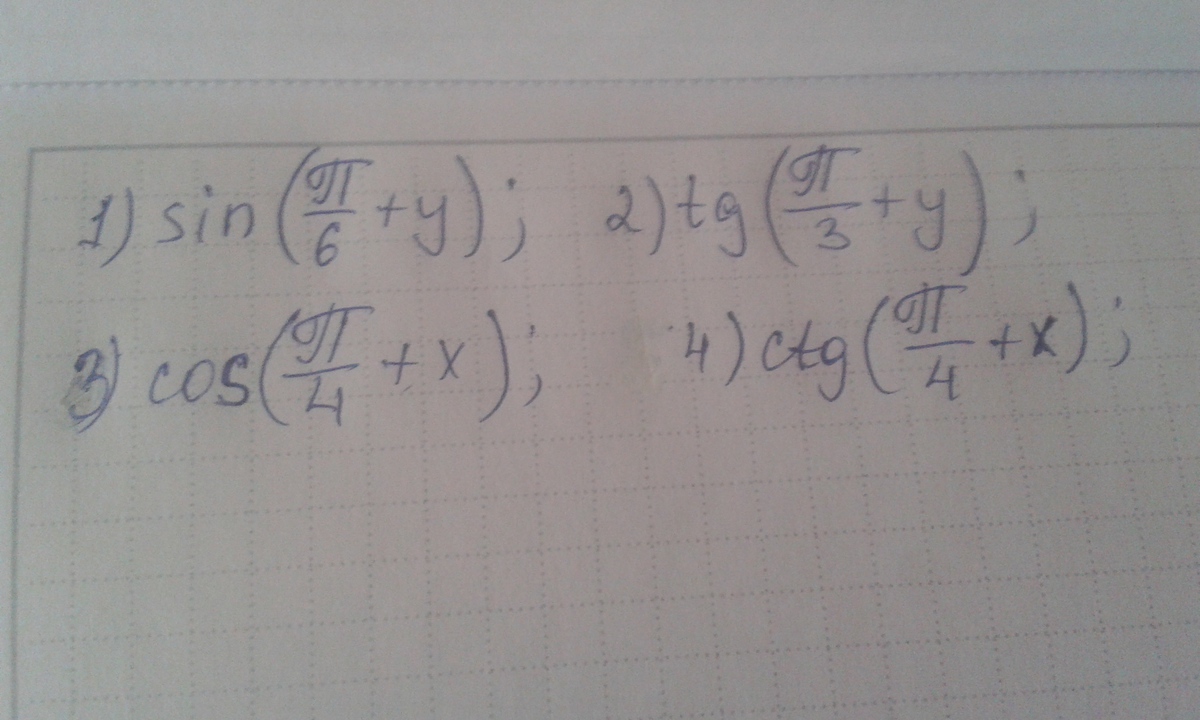 1) sin(π/6 + y); 2) tg(π/3 + y);
3) cos(π/4 + x); 4) ctg(π/4 + x);